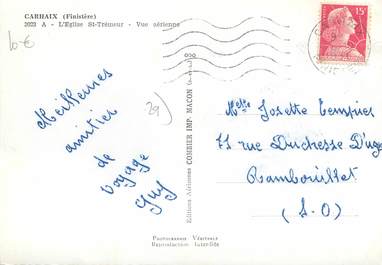 CARHAIX (Finistère)
3023 A - L'Eglise St-Trémeur - Vue aérienne
10 €
29)
Meilleures
amitiés
de
voyage
Guy
Editions Aériennes COMBIER IMP. MACON
15F
Melle Josette Tempier
71 rue Duchesse D'Uzès
Rambouillet
(S.O)
Photographie Véritable
Reproduction Interdite